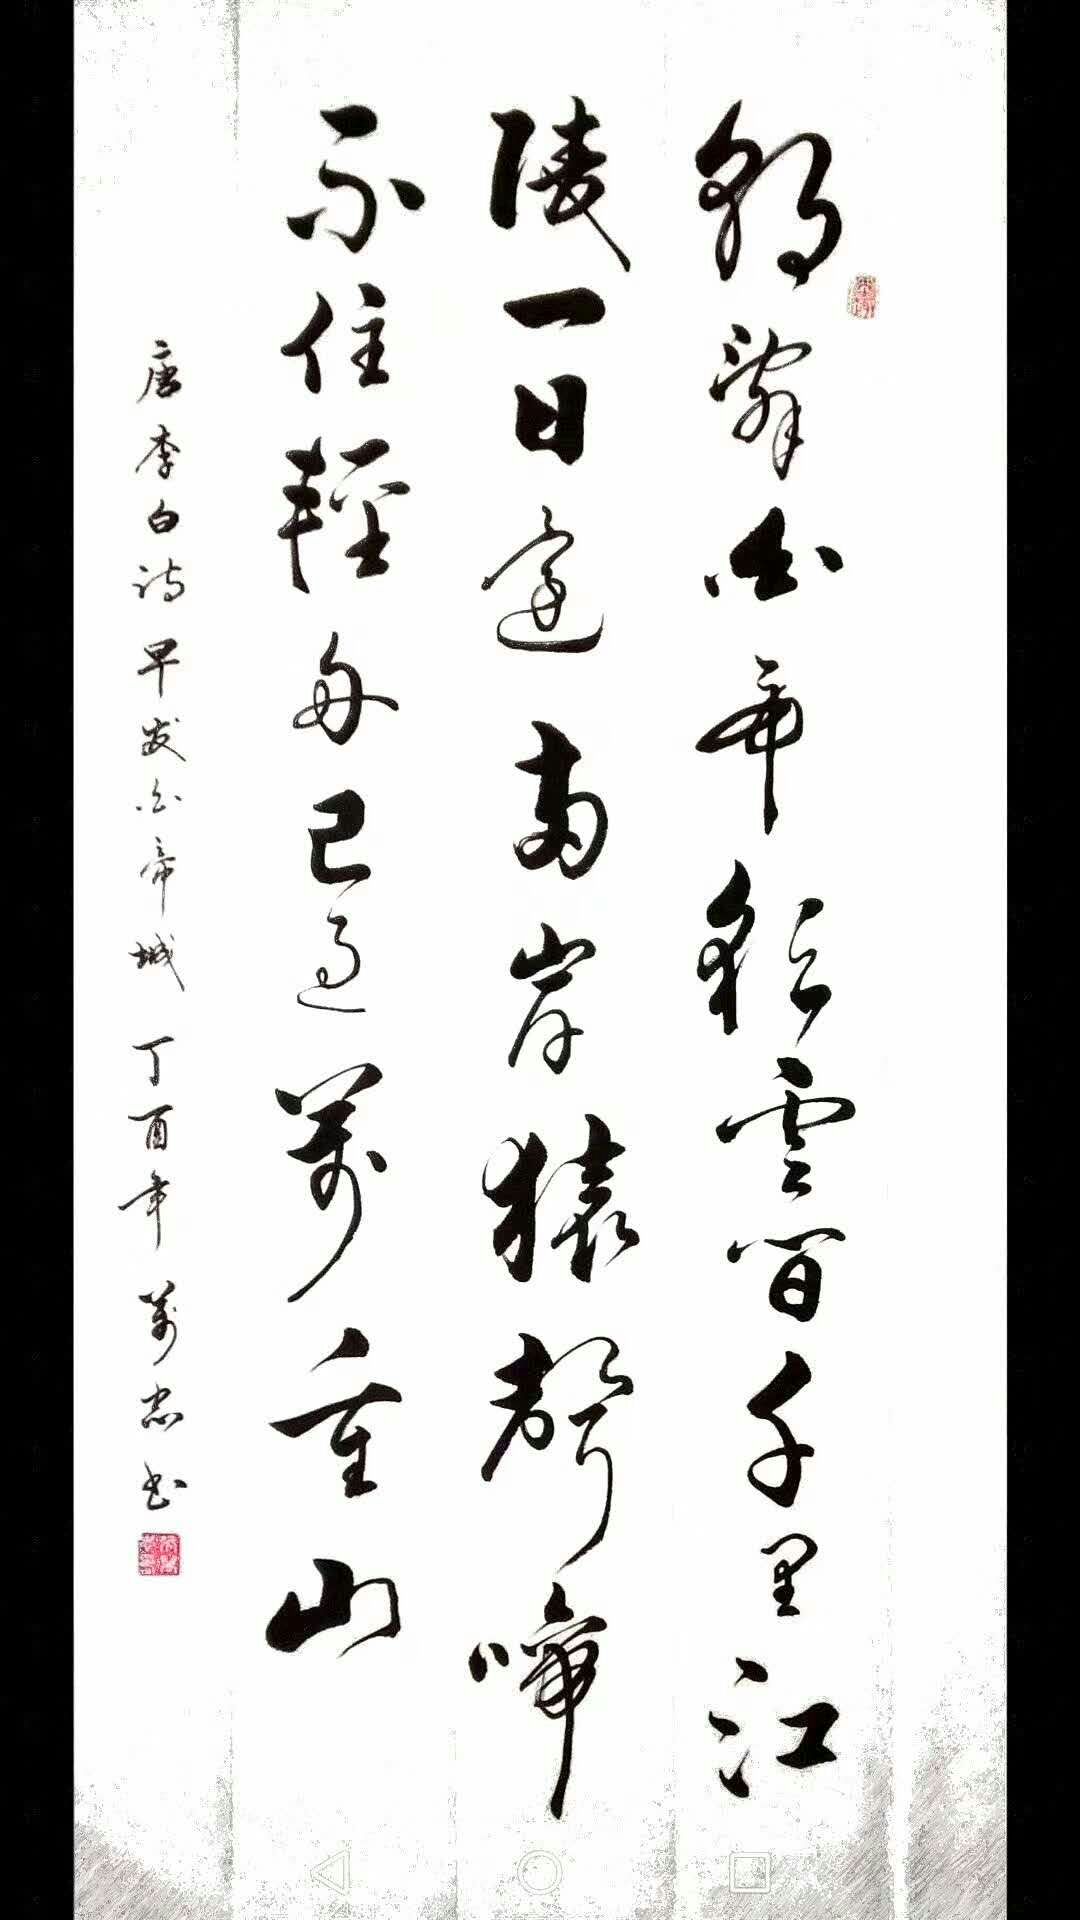 朝辞白帝彩雲間千里江
陵一日還兩岸猿聲啼
不住輕舟已過萬重山
唐李白诗早发白帝城 丁酉年 萬忠书